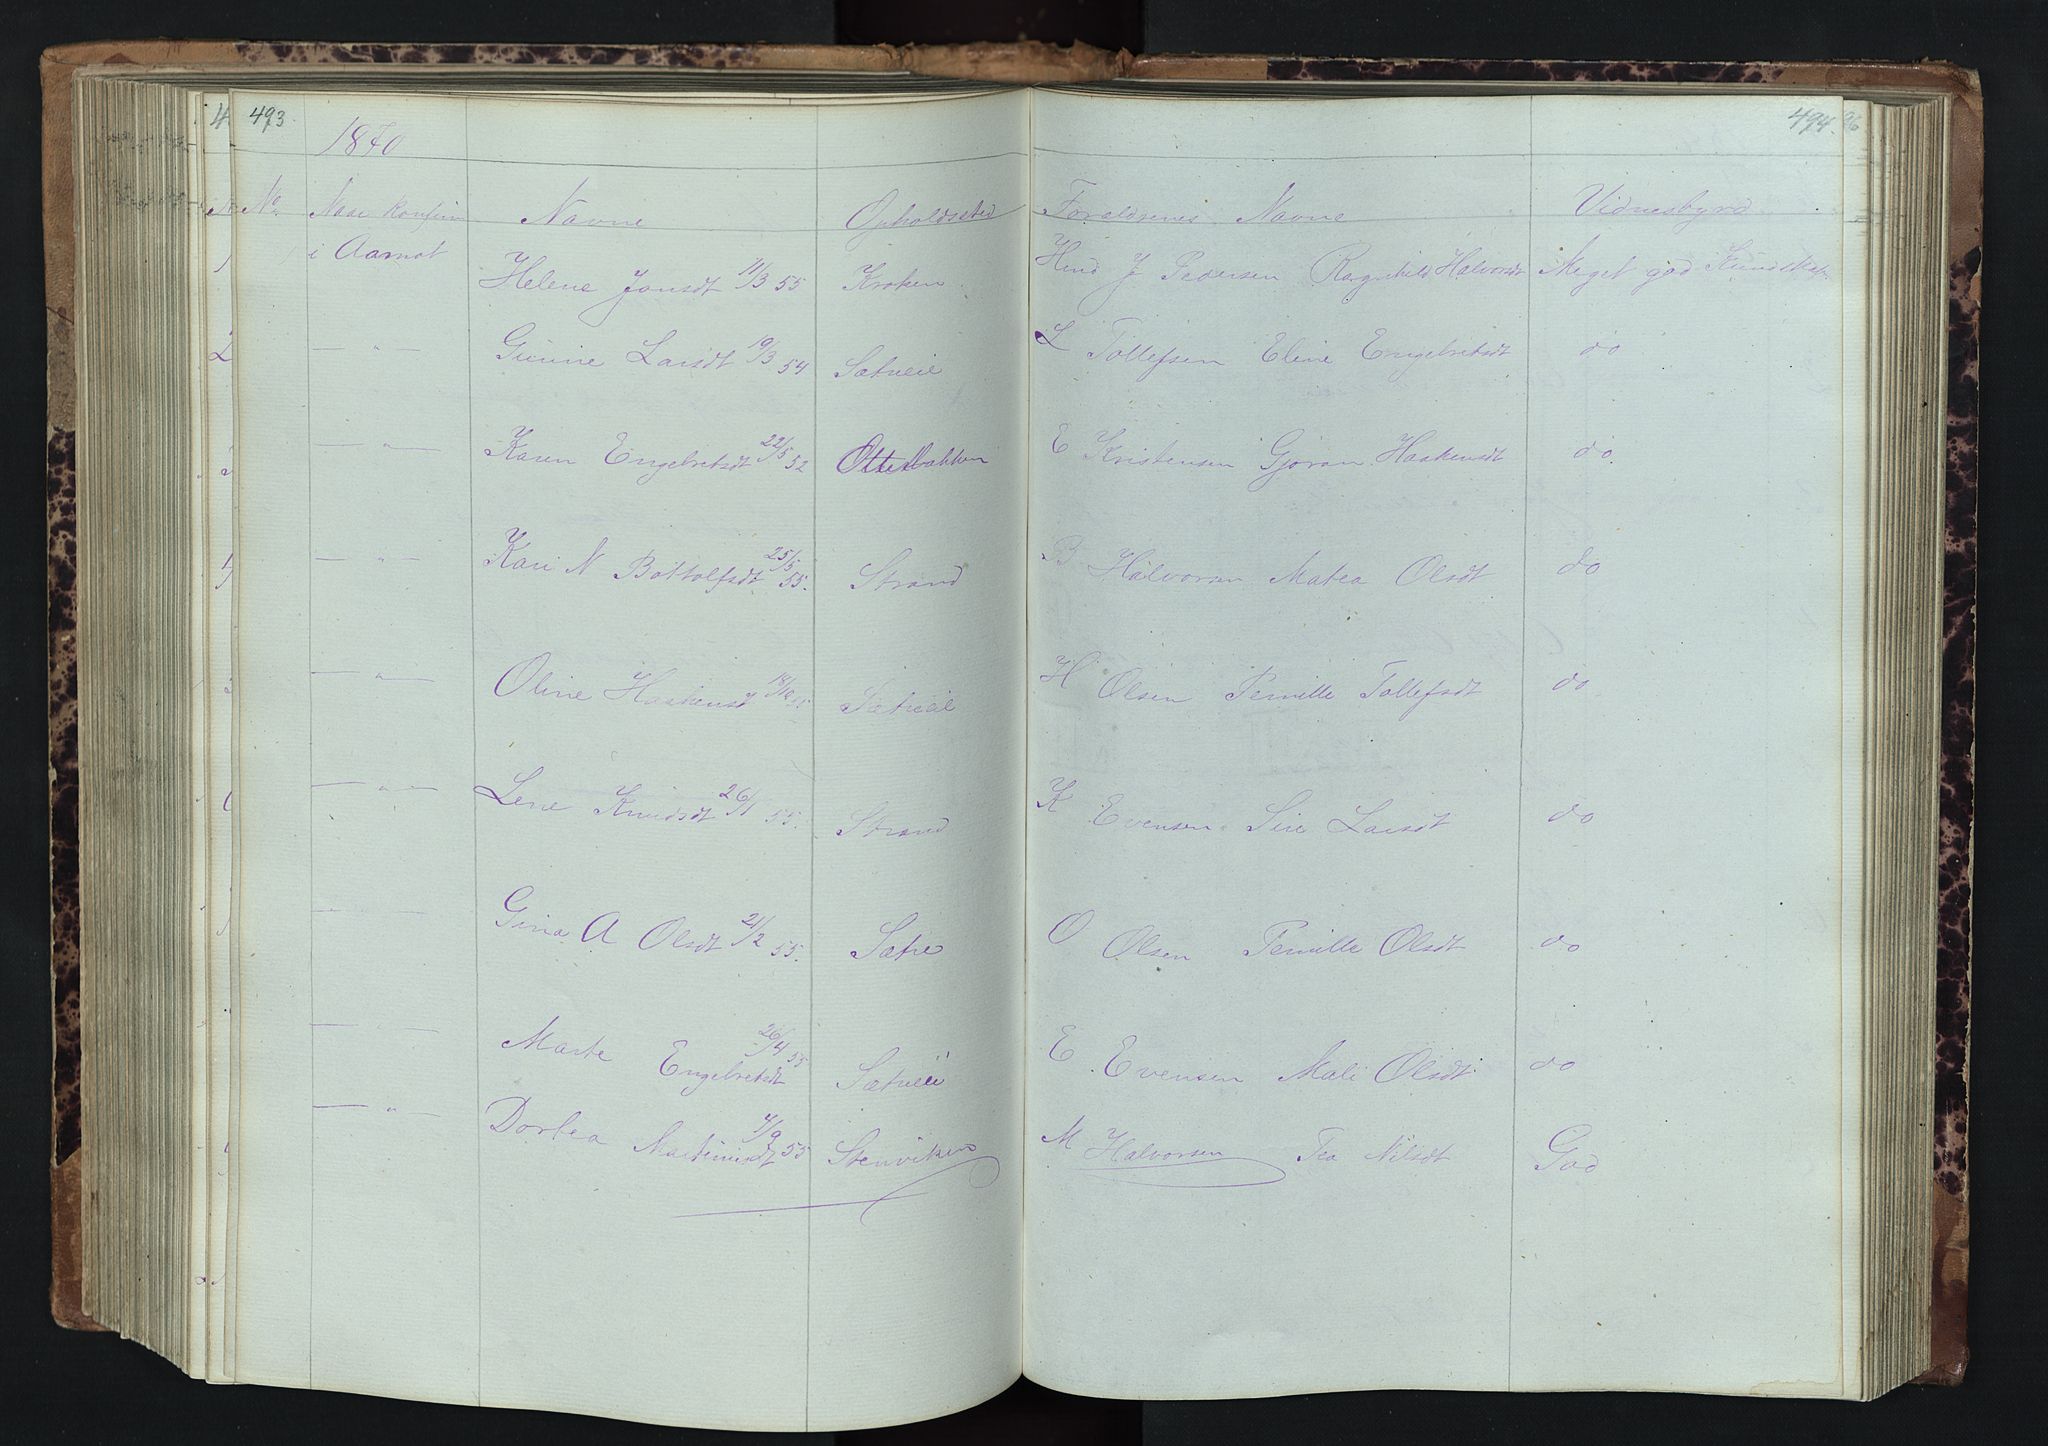 493
494.
1870
No. Naar Konfirm Navne Opholdssted Forældrenes Navne Vidnesbyrd
i Aamot Helene Jonsdt 11/3 55 Kroken Hend J Pedersen Ragnhild Halvorsdt Meget god Kundskab
— " — Gunine Larsdt 19/3 54 L Tollefsen Eline Engebretsdt do
— " — Karen Engebretsdt 22/5 52 Ottesbakken E Kristensen Gjøran Haakensdt do.
— " — Kari N Bottolfsdt 25/5 55. Strand B Halvorsen Matea Olsdt do
— " — Oline Haakensdt 18/10 55 H Olsen Pernille Tollefsdt do
— " — Lene Knudsdt 26/1 55. Strand K Evensen Siri Larsdt do
— — Gina A Olsdt 21/2 55. Sætre O Olsen Pernille Olsdt do
— " — Marte Engebretsdt 26/4 55 E Evensen Mali Olsdt do
— " — Dortea Martinusdt 7/9 55 Stenviken M Halvorsen Tea Nilsdt God